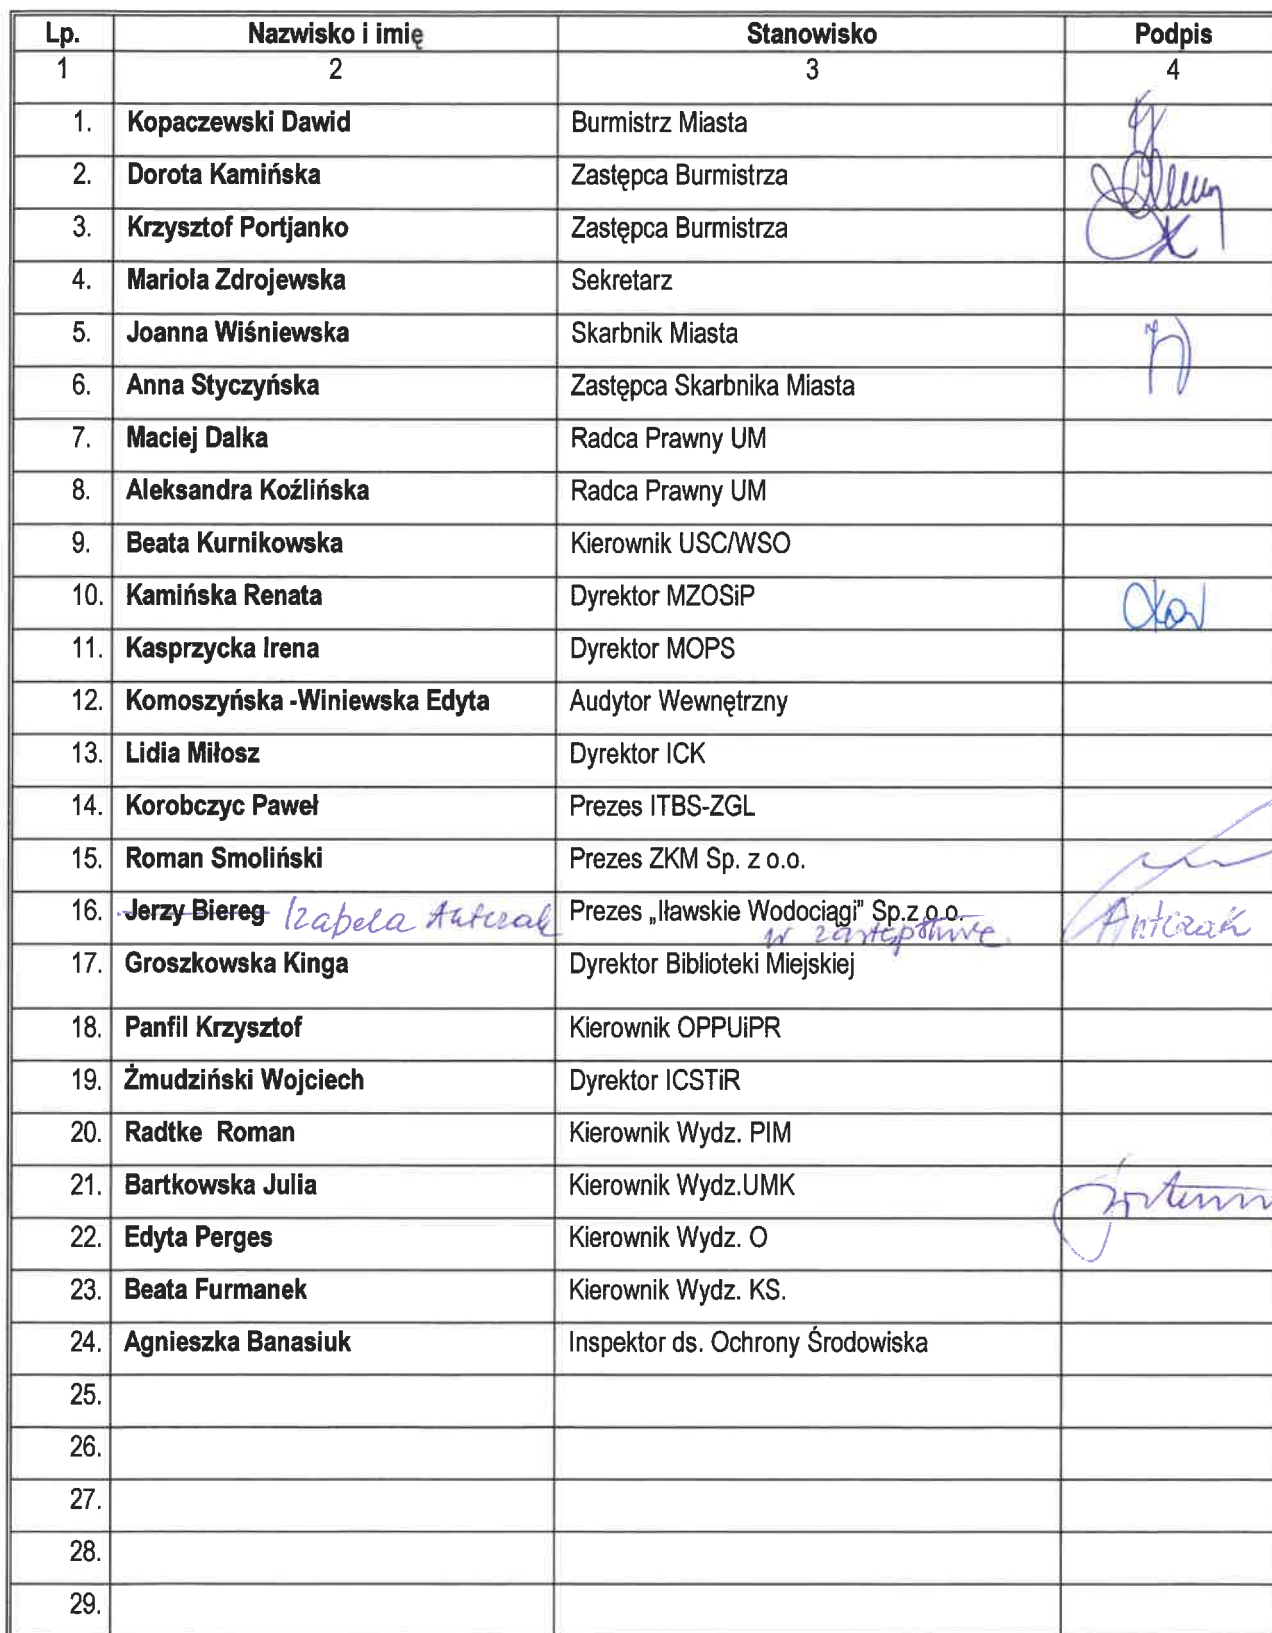 Lp. Nazwisko i imię Stanowisko Podpis
1 2 3 4
1. Kopaczewski Dawid Burmistrz Miasta
2. Dorota Kamińska Zastępca Burmistrza
3. Krzysztof Portjanko Zastępca Burmistrza
4. Mariola Zdrojewska Sekretarz
5. Joanna Wiśniewska Skarbnik Miasta
6. Anna Styczyńska Zastępca Skarbnika Miasta
7. Maciej Dalka Radca Prawny UM
8. Aleksandra Koźlińska Radca Prawny UM
9. Beata Kurnikowska Kierownik USC/WSO
10. Kamińska Renata Dyrektor MZOSiP
11. Kasprzycka Irena Dyrektor MOPS
12. Komoszyńska -Winiewska Edyta Audytor Wewnętrzny
13. Lidia Miłosz Dyrektor ICK
14. Korobczyc Paweł Prezes ITBS-ZGL
15. Roman Smoliński Prezes ZKM Sp. z o.o.
16. Jerzy Biereg Izabela Antczak Prezes „Iławskie Wodociągi" Sp.z o.o. Antczak
w zastępstwie
17. Groszkowska Kinga Dyrektor Biblioteki Miejskiej
18. Panfil Krzysztof Kierownik OPPUiPR
19. Żmudziński Wojciech Dyrektor ICSTiR
20. Radtke Roman Kierownik Wydz. PIM
21. Bartkowska Julia Kierownik Wydz.UMK
22. Edyta Perges Kierownik Wydz. O
23. Beata Furmanek Kierownik Wydz. KS.
24. Agnieszka Banasiuk Inspektor ds. Ochrony Środowiska
25.
26.
27.
28.
29.